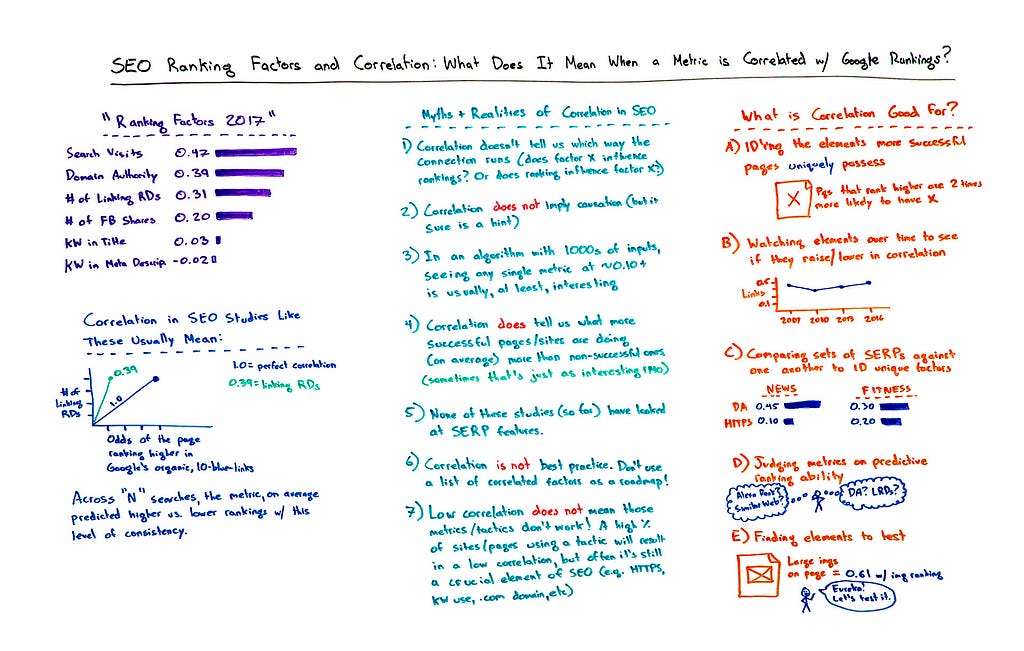 SEO Ranking Factors and Correlation: What Does It Mean When a Metric is Correlated w/ Google Rankings?
"Ranking Factors 2017"
Search Visits 0.47
Domain Authority 0.39
# of Linking RDs 0.31
# of FB Shares 0.20
KW in Title 0.03
KW in Meta Descrip -0.02
Correlation in SEO Studies Like
These Usually Mean:
0.39
1.0
# of
Linking
RDs
1.0 = perfect correlation
0.39 = linking RDs
Odds of the page
ranking higher in
Google's organic, 10-blue-links
Across "N" searches, the metric, on average
predicted higher vs. lower rankings w/ this
level of consistency.
Myths + Realities of Correlation in SEO
1) Correlation doesn't tell us which way the
connection runs (does factor X influence
rankings? Or does ranking influence factor X?)
2) Correlation does not imply causation (but it
sure is a hint)
3) In an algorithm with 1000s of inputs,
seeing any single metric at ~0.10+
is usually, at least, interesting
4) Correlation does tell us what more
successful pages/sites are doing
(on average) more than non-successful ones
(sometimes that's just as interesting IMO)
5) None of these studies (so far) have looked
at SERP features.
6) Correlation is not best practice. Don't use
a list of correlated factors as a roadmap!
7) Low correlation does not mean those
metrics/tactics don't work! A high %
of sites/pages using a tactic will result
in a low correlation, but often it's still
a crucial element of SEO (e.g. HTTPS,
KW use, .com domain, etc)
What is Correlation Good For?
A) ID'ing the elements more successful
pages uniquely possess
X
Pgs that rank higher are 2 times
more likely to have X
B) Watching elements over time to see
if they raise/lower in correlation
Links
0.5
0.1
2007 2010 2013 2016
C) Comparing sets of SERPs against
one another to ID unique factors
NEWS FITNESS
DA 0.45 0.30
HTTPS 0.10 0.20
D) Judging metrics on predictive
ranking ability
Alexa Rank?
Similar Web?
DA? LRDs?
E) Finding elements to test
Large imgs
on page = 0.61 w/ img ranking
Eureka!
Let's test it.